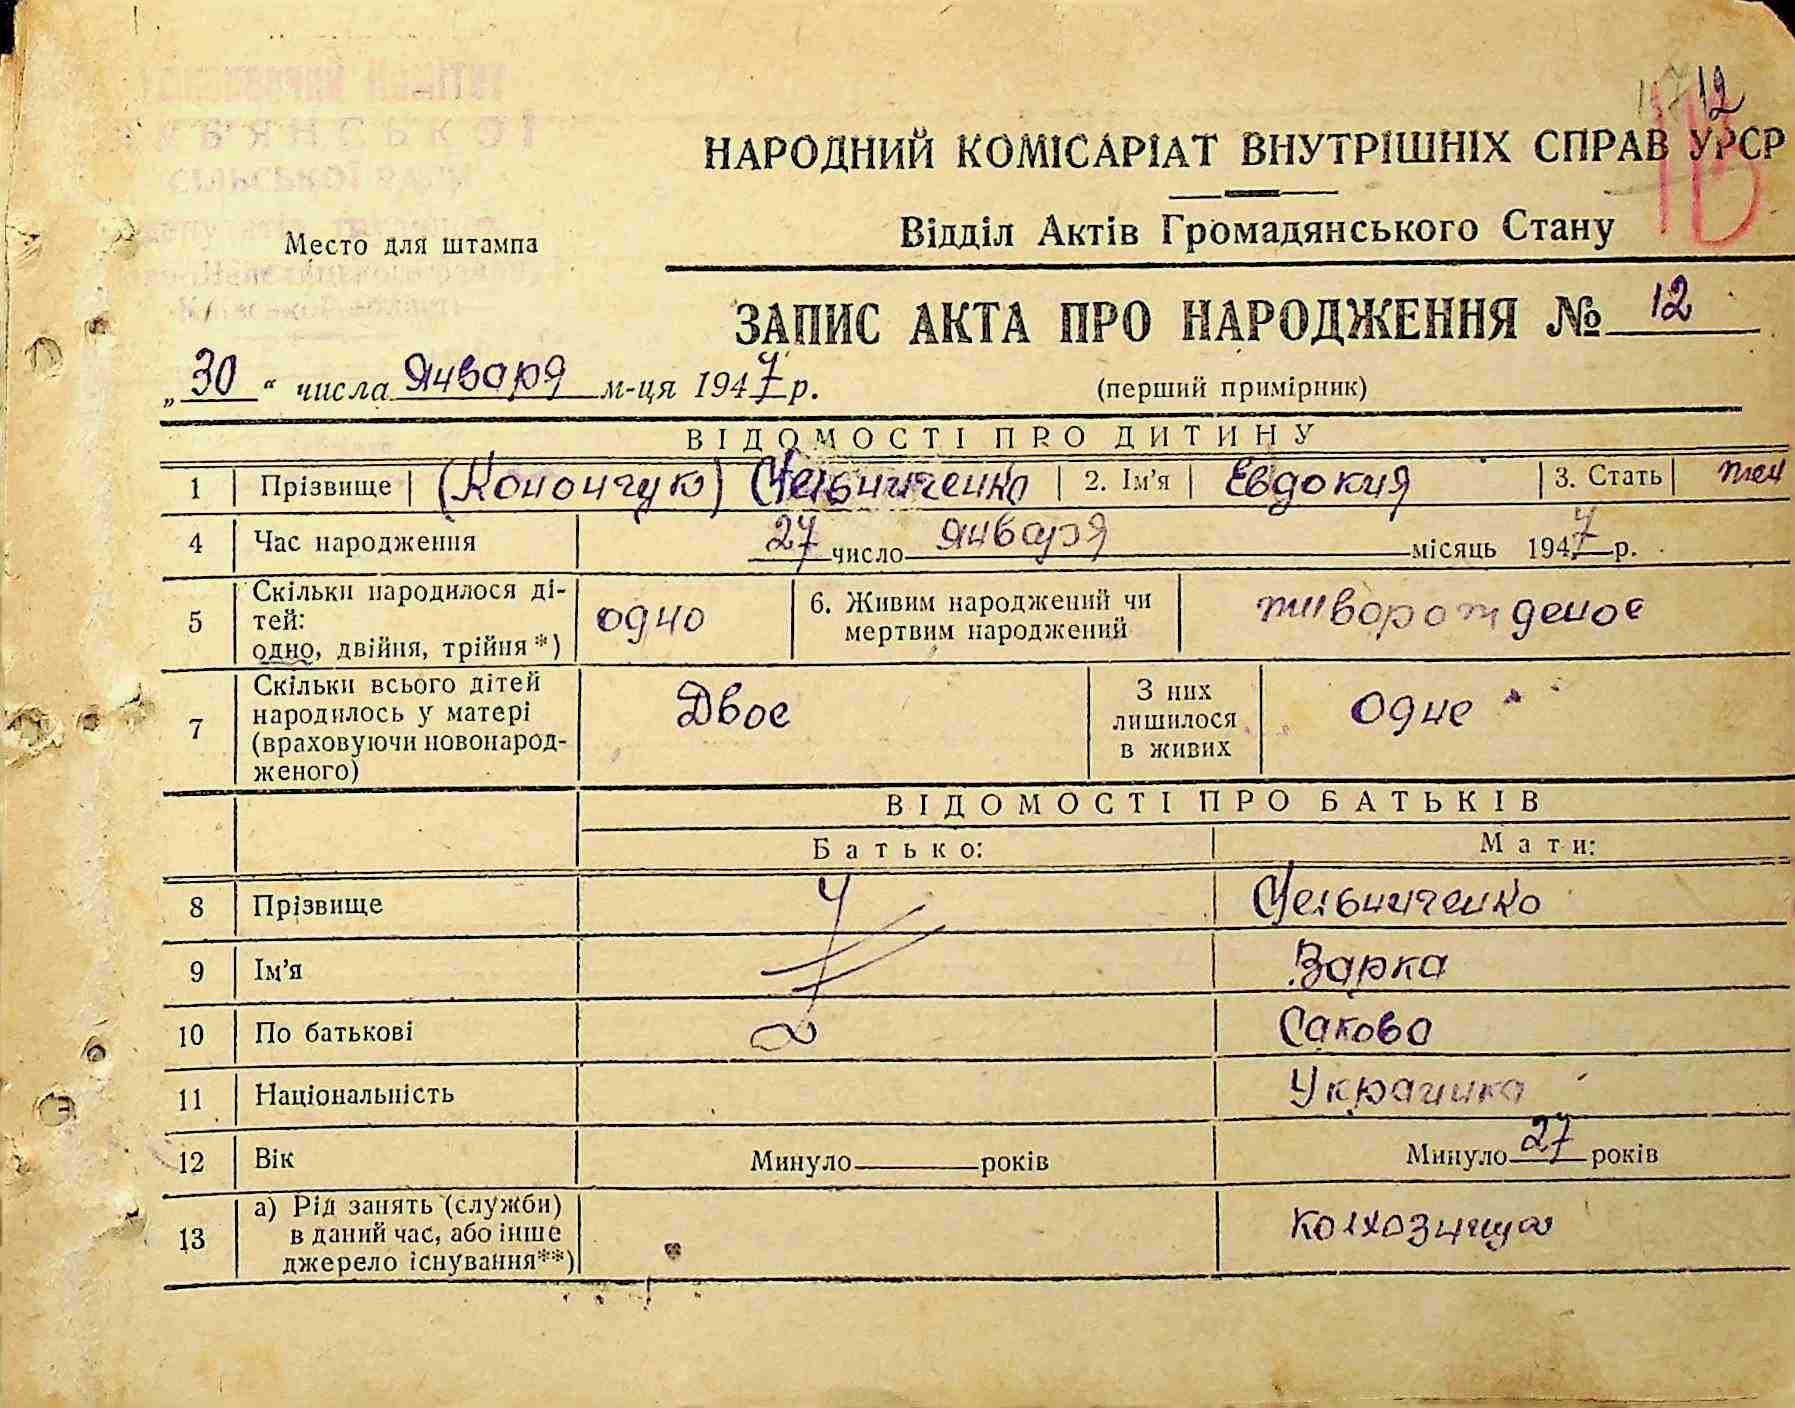 12
НАРОДНИЙ КОМІСАРІАТ ВНУТРІШНІХ СПРАВ УРСР
Відділ Актів Громадянського Стану
Место для штампа
ЗАПИС АКТА ПРО НАРОДЖЕННЯ № 12
„30“ числа Января м-ця 1947 р. (перший примірник)
ВІДОМОСТІ ПРО ДИТИНУ
1 Прізвище (Конончук) Мельниченко 2. Ім'я Евдокия 3. Стать жен
4 Час народження 27 число Января місяць 1947 р.
5 Скільки народилося ді-
тей:
одно, двійня, трійня *) одно 6. Живим народжений чи
мертвим народжений живорожденое
7 Скільки всього дітей
народилось у матері
(враховуючи новонарод-
женого) Двое З них
лишилося
в живих одне
ВІДОМОСТІ ПРО БАТЬКІВ
Батько: Мати:
8 Прізвище Мельниченко
9 Ім'я Варка
10 По батькові Сакова
11 Національність Украинка
12 Вік Минуло років Минуло 27 років
13 а) Рід занять (служби)
в даний час, або інше
джерело існування**) колхозница